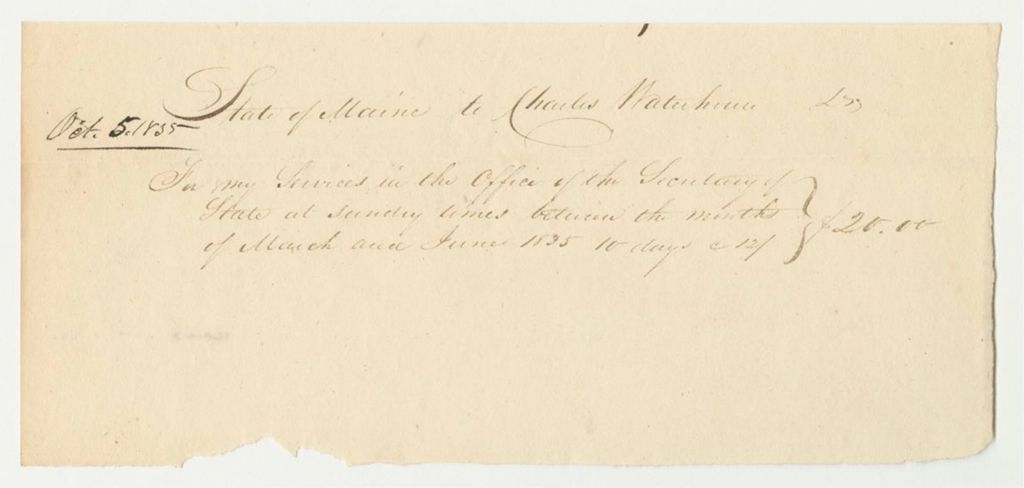 State of Maine to Charles Waterhouse Dr
Oct. 5. 1835
For my Services in the Office of the Secretary of
State at sundry times between the months
of March and June 1835 10 days @ 12/ } $20.00